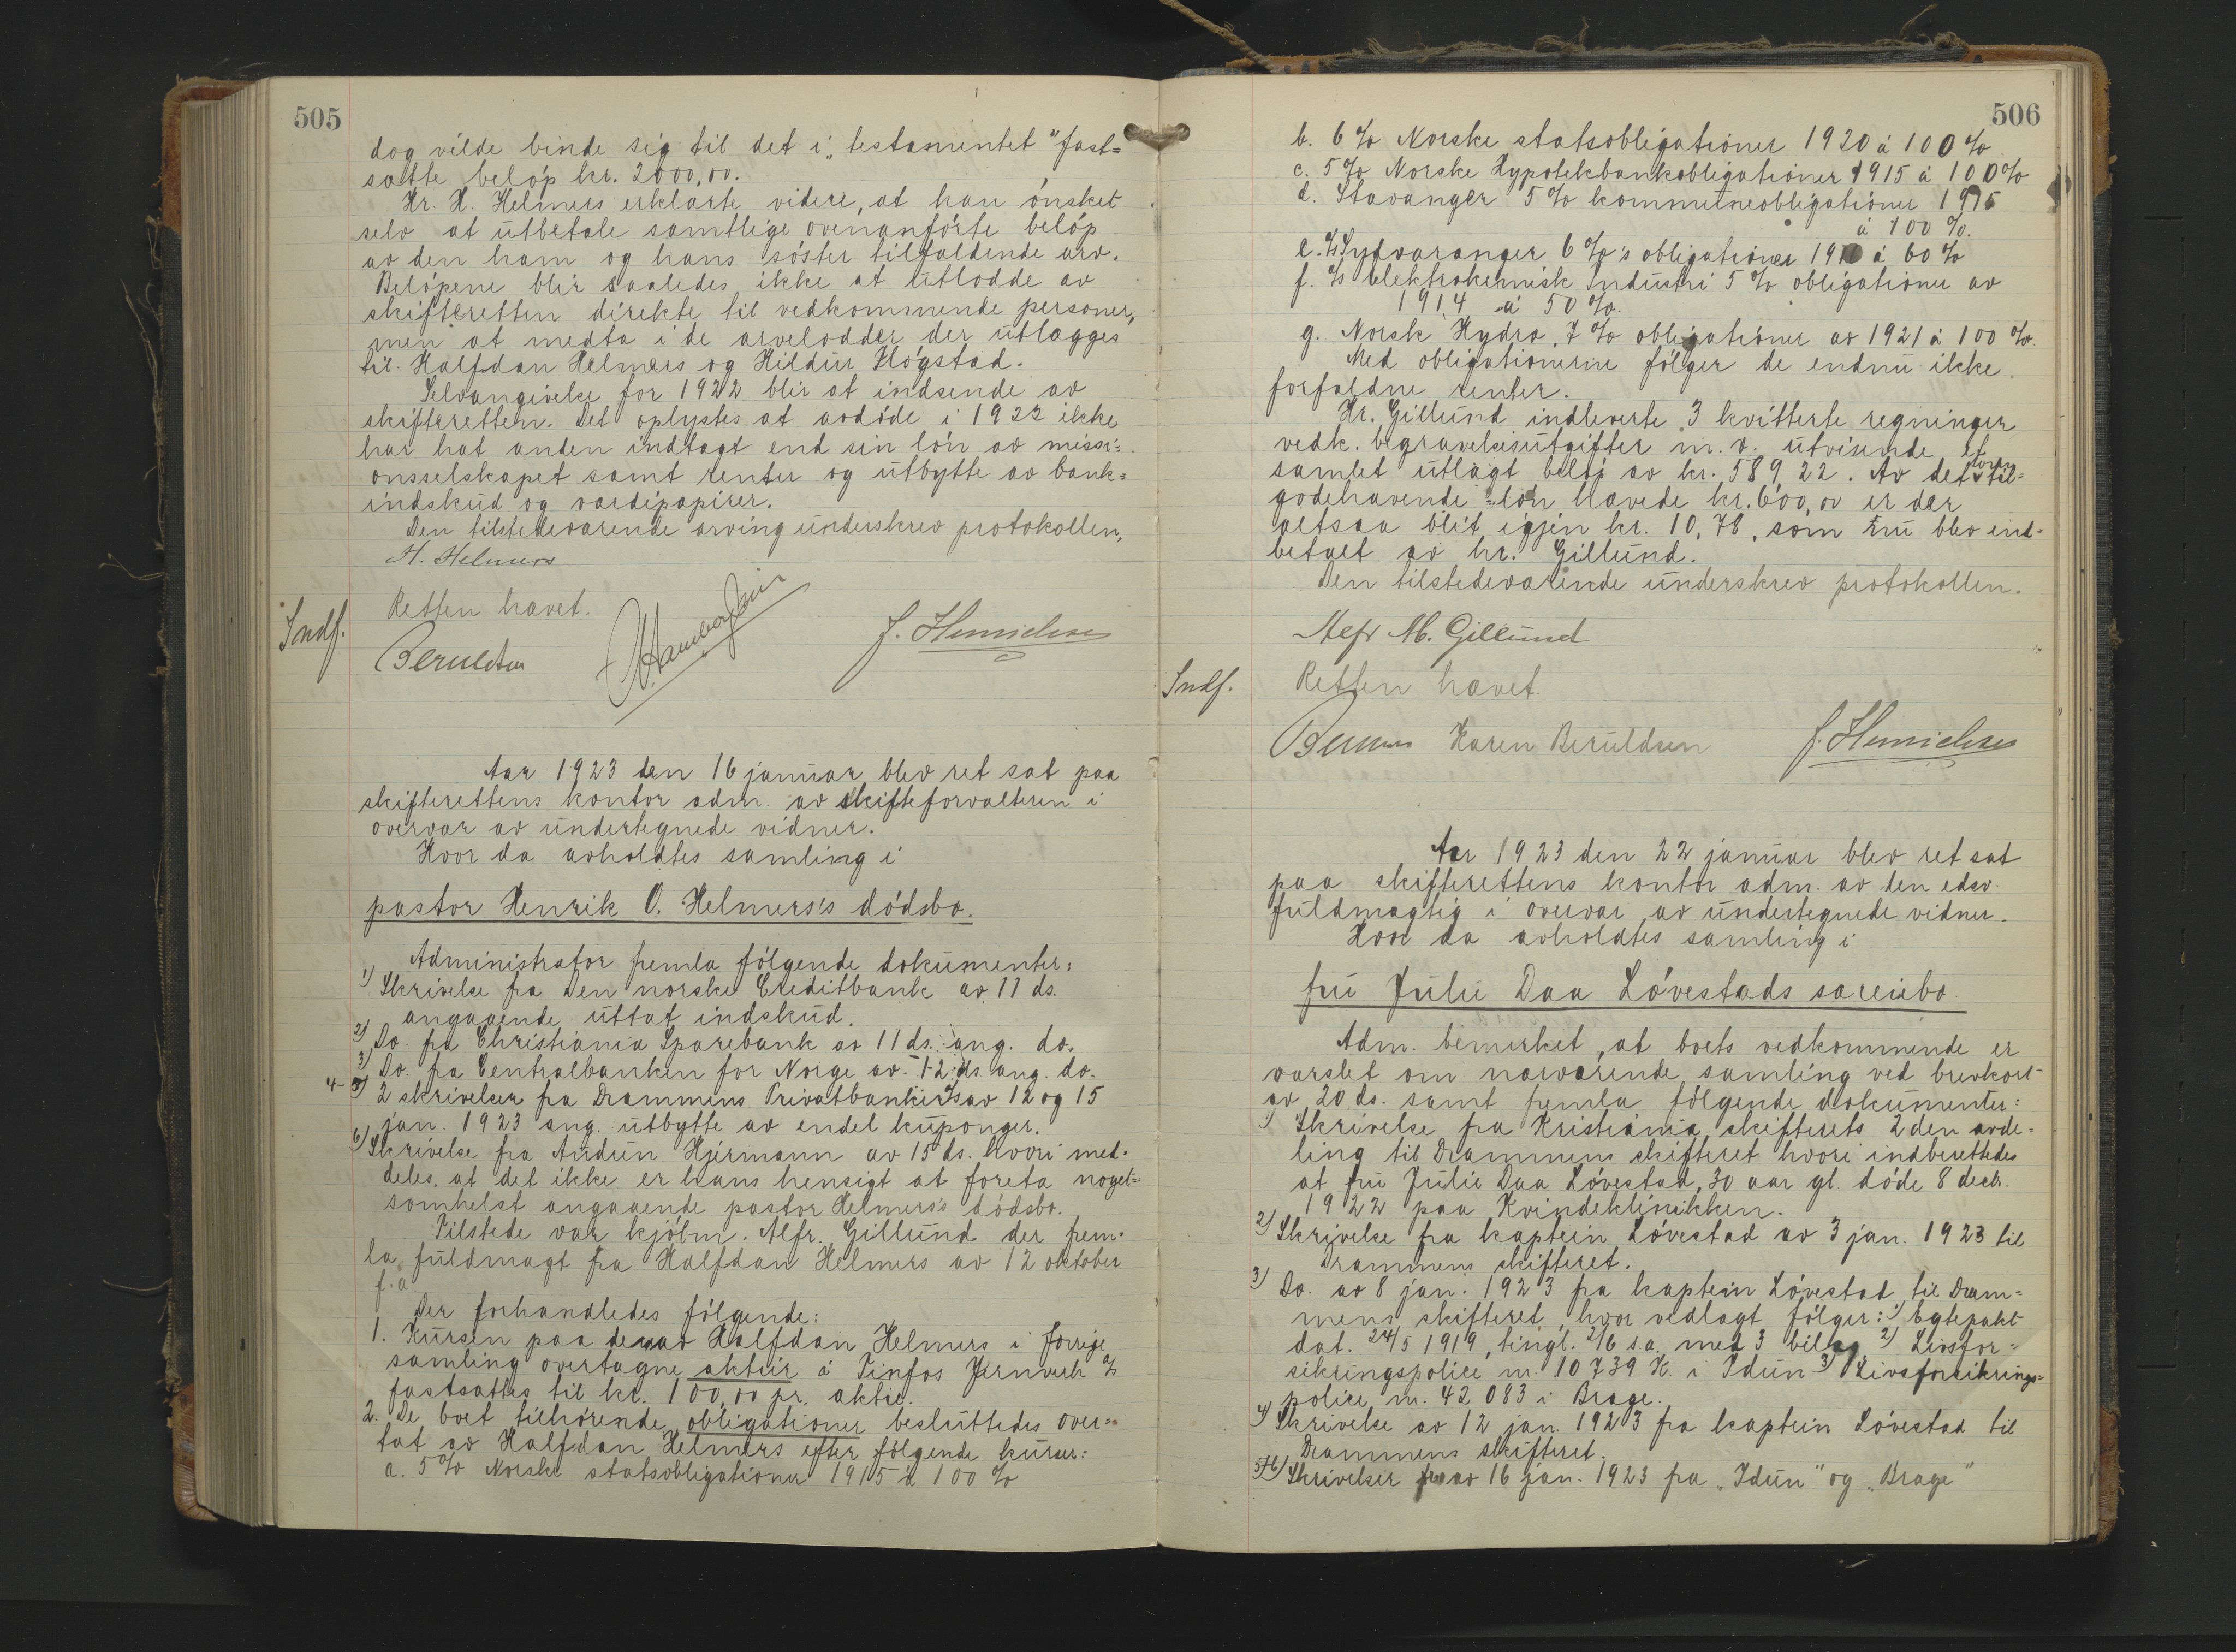 505
dog vilde binde sig til det i „testamentet" fast=
satte beløp kr. 2000,00.
Hr. H. Helmers erklærte videre, at han ønsket
selv at utbetale samtlige ovenanførte beløp
av den ham og hans søster tilfaldende arv.
Beløpene blir saaledes ikke at utlodde av
skifteretten direkte til vedkommende personer,
men at medta i de arvelodder der utlægges
til Halfdan Helmers og Hildur Høgstad.
Selvangivelse for 1922 blir at indsende av
skifteretten. Det oplystes at avdøde i 1922 ikke
har hat anden indtægt end sin løn av missi=
onsselskapet samt renter og utbytte av bank=
indskud og værdipapirer.
Den tilstedeværende arving underskrev protokollen,
H. Helmers
Retten hævet.
Indf.
J. Henrichsen
Aar 1923 den 16 januar blev ret sat paa
skifterettens kontor adm. av skifteforvalteren i
overvær av undertegnede vidner.
Hvor da avholdtes samling i
pastor Henrik O. Helmers's dødsbo.
Administrator fremla følgende dokumenter:
1) Skrivelse fra Den norske Creditbank av 11 ds.
angaaende uttat indskud.
2) Do. fra Christiania Sparebank av 11 ds. ang. do.
3) Do. fra Centralbanken for Norge av 12 ds. ang. do.
4-5) 2 skrivelser fra Drammens Privatbank A/s av 12 og 15
jan. 1923 ang. utbytte av endel kuponger.
6) Skrivelse fra Audun Hjermann av 15 ds. hvori med=
deles, at det ikke er hans hensigt at foreta noget=
somhelst angaaende pastor Helmers's dødsbo.
Tilstede var kjøbm. Alfr. Gillund der frem=
la fuldmagt fra Halfdan Helmers av 12 oktober
f.a.
Der forhandledes følgende:
1. Kursen paa de av Halfdan Helmers i forrige
samling overtagne aktier á Tinfos Jernverk A/s
fastsattes til kr. 100,00 pr. aktie.
2. De boet tilhørende obligationer besluttedes over=
tat av Halfdan Helmers efter følgende kurser:
a. 5 % Norske statsobligationer 1915 á 100 %
506
b. 6 % Norske statsobligationer 1920 á 100 %
c. 5 % Norske Hypotekbankobligationer 1915 á 100 %
d. Stavanger 5 % kommuneobligationer 1915
á 100 %.
e. A/s Sydvaranger 6 %'s obligationer 1910 á 60 %
f. A/s Elektrokemisk Industri 5 % obligationer av
1914 á 50 %.
g. Norsk Hydro, 7 % obligationer av 1921 á 100 %.
Med obligationerne følger de endnu ikke
forfaldne renter.
Hr. Gillund indleverte 3 kvitterte regninger
vedk. begravelsesutgifter m. v. utvisende et
samlet utlagt beløp av kr. 589,22. Av det til=
godehavende løn hævede kr. 600,00 er der
altsaa blit igjen kr. 10,78, som nu blev ind=
betalt av hr. Gillund.
Den tilstedeværende underskrev protokollen.
Alfr M. Gillund
Indf.
Retten hævet.
Karen Beruldsen J. Henrichsen
Aar 1923 den 22 januar blev ret sat
paa skifterettens kontor adm. av den edsv.
fuldmægtig i overvær av undertegnede vidner.
Hvor da avholdtes samling i
fru Julie Daa Løvestads særeiebo.
Adm. bemerket, at boets vedkommende er
varslet om nærværende samling ved brevkort
av 20 ds. samt fremla følgende dokumenter:
1) Skrivelse fra Kristiania skifterets 2den avde=
ling til Drammens skifteret hvori indberettedes
at fru Julie Daa Løvestad, 30 aar gl. døde 8 decbr.
1922 paa Kvindeklinikken.
2) Skrivelse fra kaptein Løvestad av 3 jan. 1923 til
Drammens skifteret.
3) Do. av 8 jan. 1923 fra kaptein Løvestad til Dram=
mens skifteret, hvor vedlagt følger: 1) Egtepakt
dat. 24/5 1919, tingl. 2/6 s.a. med 3 bilag 2) Livsfor=
sikringspolice nr. 10739 K. i Idun 3) Livsforsikrings=
police nr. 42083 i Brage.
4) Skrivelse av 12 jan. 1923 fra kaptein Løvestad til
Drammens skifteret.
5+6) Skrivelser av 16 jan. 1923 fra „Idun" og „Brage"